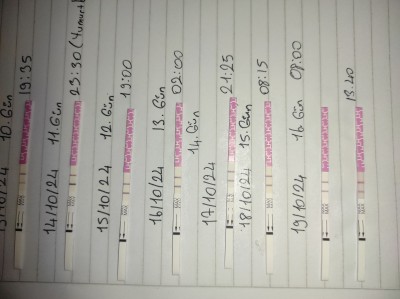 13/10/24 10.Gün 19:35
14/10/24 11.Gün 23:30 (Yumurt
15/10/24 12.Gün 19:00
16/10/24 13.Gün 02:00
14.Gün
17/10/24 21:25
18/10/24 15.Gün 08:15
19/10/24 16 Gün 08:00
13.40